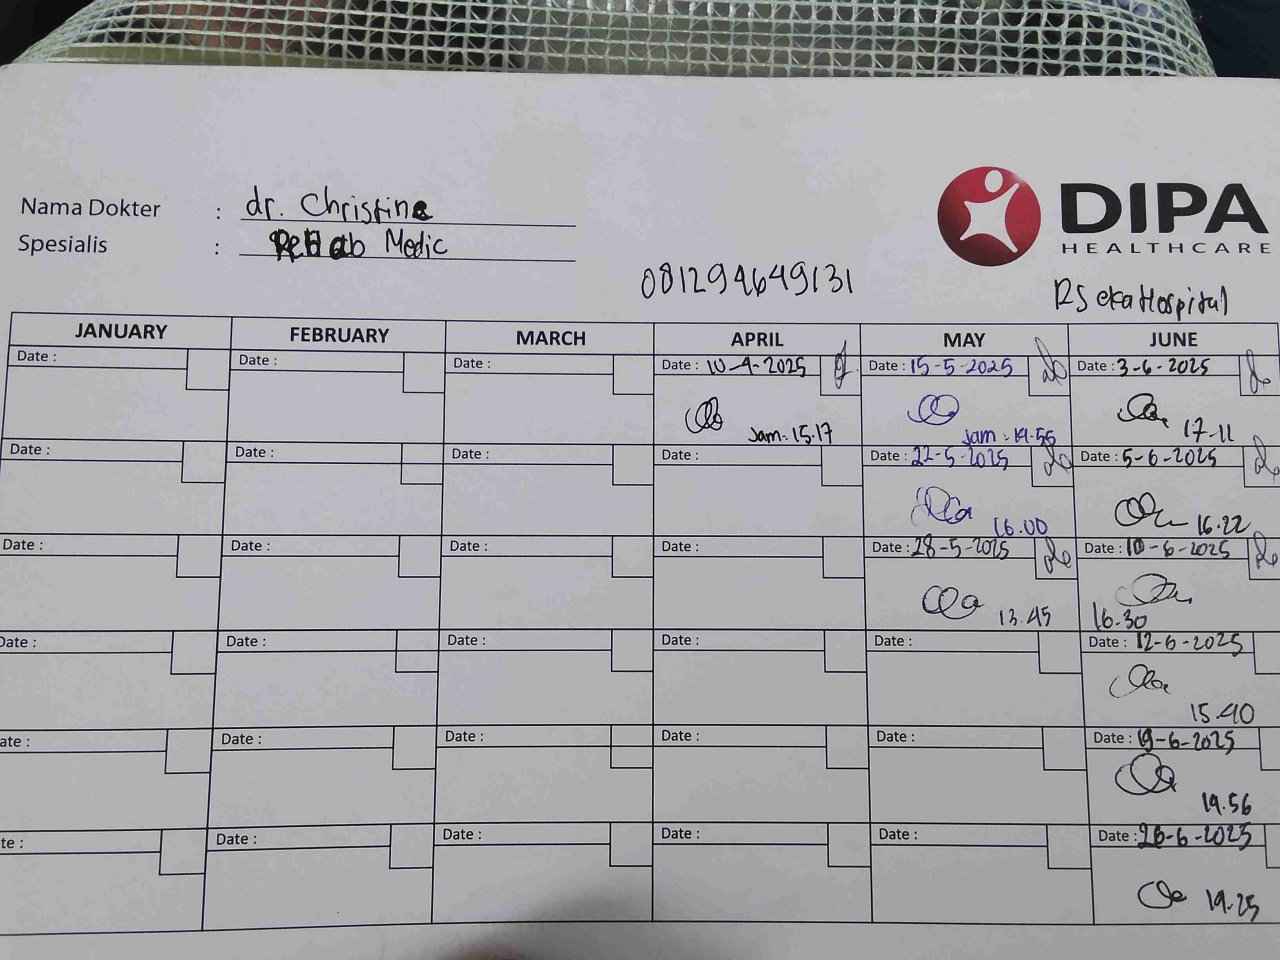 Nama Dokter : dr. Christine
Spesialis : Rehab Medic
DIPA
HEALTHCARE
081294649131
RS eka Hospital
JANUARY FEBRUARY MARCH APRIL MAY JUNE
Date : Date : Date : Date : 10-4-2025 Date : 15-5-2025 Date : 3-6-2025
Jam : 15.17 Jam : 14.55 17-11
Date : Date : Date : Date : Date : 22-5-2025 Date : 5-6-2025
16.00 16.22
Date : Date : Date : Date : Date : 28-5-2025 Date : 10-6-2025
13.45 16.30
Date : Date : Date : Date : Date : Date : 12-6-2025
15.40
ate : Date : Date : Date : Date : Date : 19-6-2025
19.56
te : Date : Date : Date : Date : Date : 26-6-2025
19.25